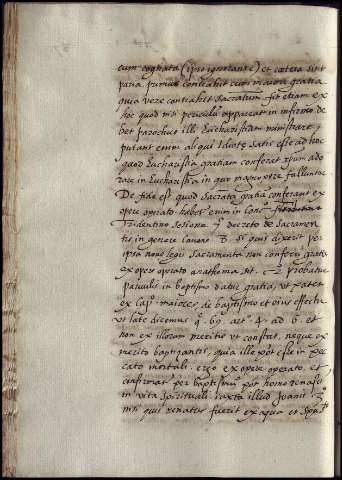 cum cognata (ipso ignorante) et cætera sint
paria primus contrahit cum maiore gratia
quia vere contrahit Sacratum. fit etiam ex
hoc quod nisi periculũ appareat in infirmo de
bet parochus illi Eucharistiam ministrare
putant enim aliqui Idiotę satis esse ad hoc
quod Eucharistia gratiam conferat xp̃um ado
rare in Eucharistia in quo magnopere falluntur
De fide est quod Sacrata gratia conferant ex
opere operato habet enim in Conc.
Tridentino Sessione 7 decreto de Sacramen
tis in genere Canone 8. Si quis dixerit per
ipsa novę legis Sacramenta non conferri gratiã
ex opere operato anathema sit. Et probatur
parvulis in baptismo datur gratia, ut patet
ex capº maiores de baptismo et eius effectu
ut late dicemus q. 69 artº 4. ad 6. et
non ex illorum merito ut constat, neque ex
merito baptizantis, quia ille põt esse in pec
cato mortali. ergo ex opere operato. et
confirmatr per baptismũ põt homo renasci
in vita Spirituali iuxta illud Joanis 3º
nisi quis renatus fuerit ex aqua et Spũ